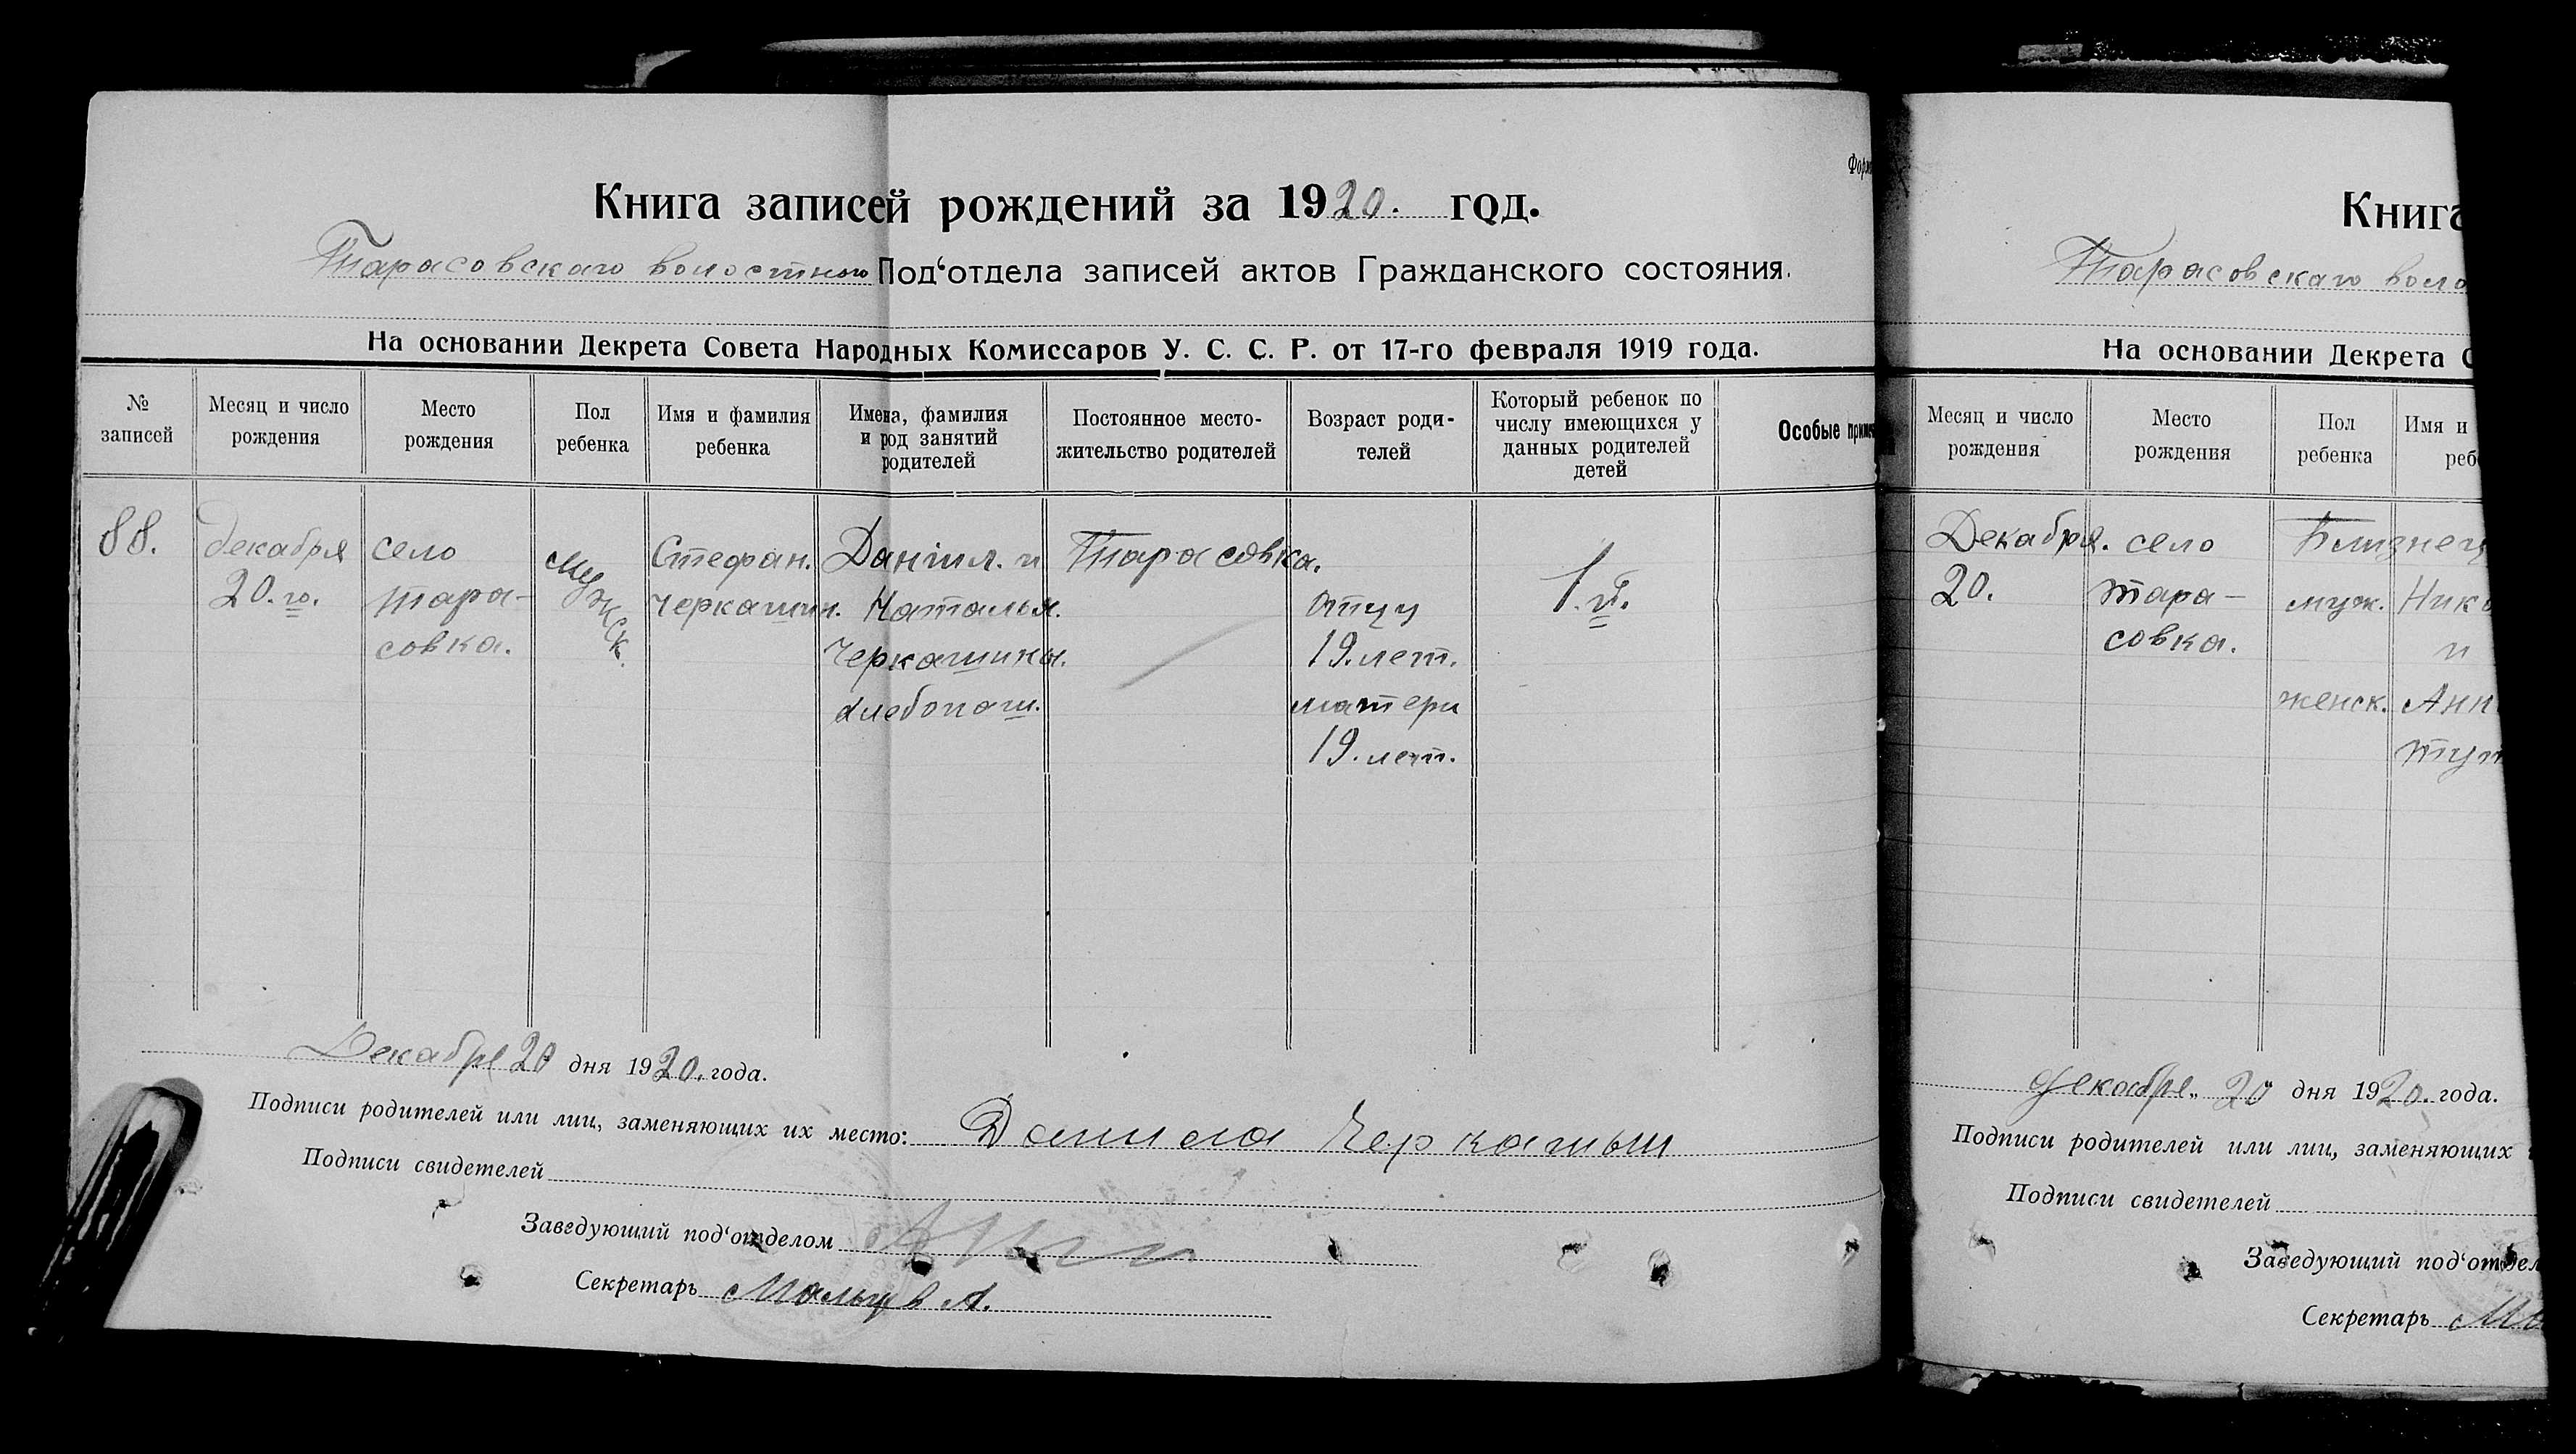 Форм
Книга записей рождений за 1920. год.
Тарасовскаго волостного Под‘отдела записей актов Гражданского состояния.
На основании Декрета Совета Народных Комиссаров У. С. С. Р. от 17-го февраля 1919 года.
№ записей
Месяц и число рождения
Место рождения
Пол ребенка
Имя и фамилия ребенка
Имена, фамилия и род занятий родителей
Постоянное место-жительство родителей
Возраст роди-телей
Который ребенок по числу имеющихся у данных родителей детей
Особые приме
88.
декабря
20.го.
село
тара-
совка.
мужск.
Стефан.
Черкашин.
Даниил. и
Наталья.
Черкашины.
хлебопаш.
Тарасовка.
отцу
19. лет.
матери
19. лет.
1.й.
Декабря 20 дня 1920. года.
Подписи родителей или лиц, заменяющих их место: Данила Черкашын
Подписи свидетелей
Заведующий под‘отделом
Секретарь Мальцев А.
Книга
Тарасовскаго воло
На основании Декрета С
Месяц и число рождения
Место рождения
Пол ребенка
Имя и
реб
Декабря.
20.
село
тара-
совка.
Близнец
муж.
женск.
Нико
и
Анн
Декабря 20 дня 1920. года.
Подписи родителей или лиц, заменяющих
Подписи свидетелей
Заведующий под‘отдел
Секретарь Ма